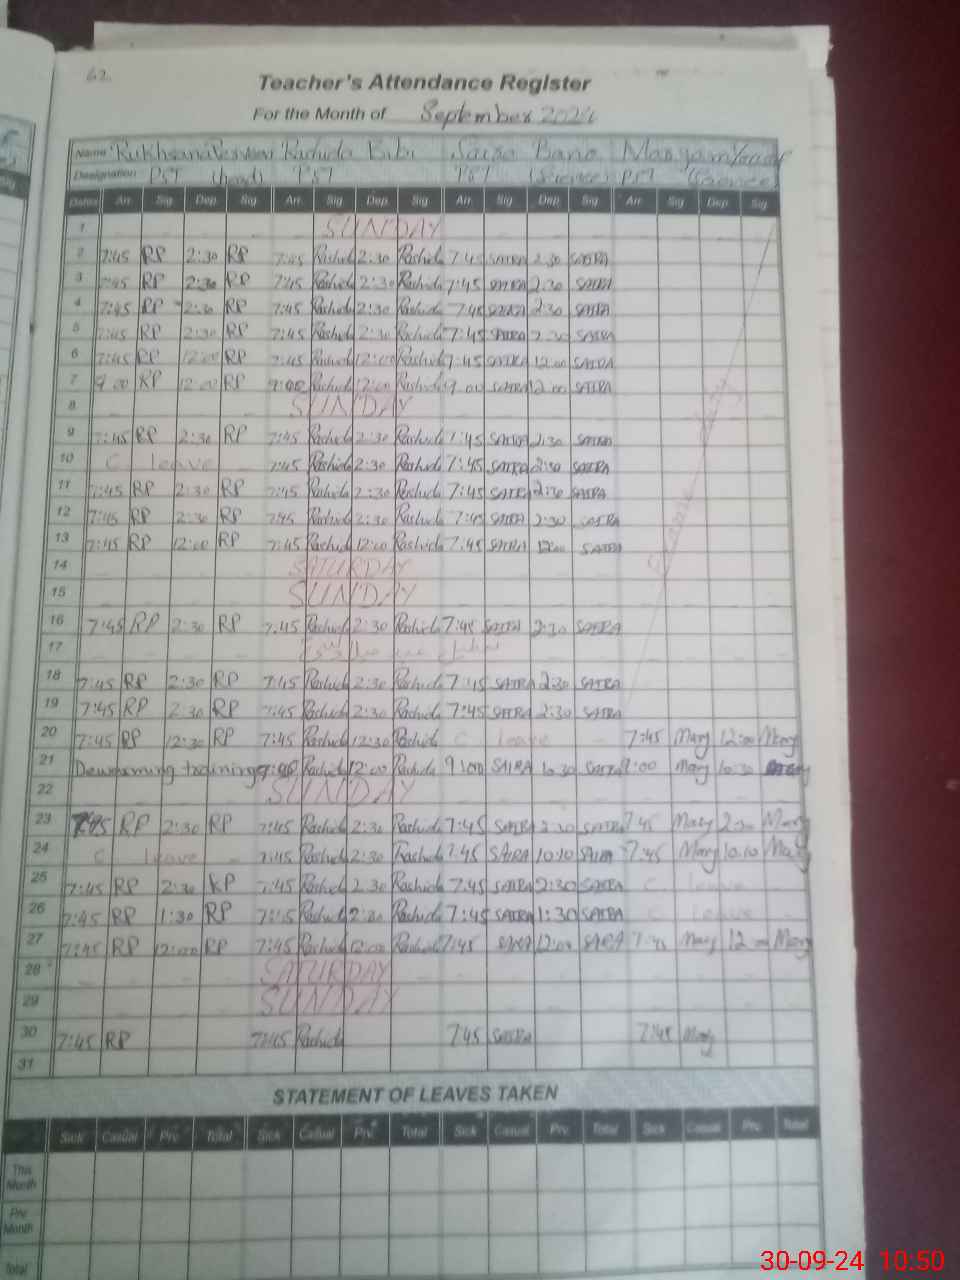 62
Teacher's Attendance Register
For the Month of September 2024
Name Rukhsana Perveen Rashida Bibi Saira Bano Maryam Yousaf
Designation PST (head) PST PST (Science) PST (Science)
Dates Arr. Sig Dep. Sig Arr. Sig Dep. Sig Arr. Sig Dep. Sig Arr. Sig Dep. Sig
1 SUNDAY
2 7:45 RP 2:30 RP 7:45 Rashida 2:30 Rashida 7:45 SAIRA 2:30 SAIRA
3 7:45 RP 2:30 RP 7:45 Rashida 2:30 Rashida 7:45 SAIRA 2:30 SAIRA
4 7:45 RP 2:30 RP 7:45 Rashida 2:30 Rashida 7:45 SAIRA 2:30 SAIRA
5 7:45 RP 2:30 RP 7:45 Rashida 2:30 Rashida 7:45 SAIRA 2:30 SAIRA
6 7:45 RP 12:00 RP 7:45 Rashida 12:00 Rashida 7:45 SAIRA 12:00 SAIRA
7 9:00 RP 12:00 RP 9:00 Rashida 12:00 Rashida 9:00 SAIRA 12:00 SAIRA
8 SUNDAY
9 7:45 RP 2:30 RP 7:45 Rashida 2:30 Rashida 7:45 SAIRA 2:30 SAIRA
10 C leave 7:45 Rashida 2:30 Rashida 7:45 SAIRA 2:30 SAIRA
11 7:45 RP 2:30 RP 7:45 Rashida 2:30 Rashida 7:45 SAIRA 2:30 SAIRA
12 7:45 RP 2:30 RP 7:45 Rashida 2:30 Rashida 7:45 SAIRA 2:30 SAIRA
13 7:45 RP 12:00 RP 7:45 Rashida 12:00 Rashida 7:45 SAIRA 12:00 SAIRA
14 SATURDAY
15 SUNDAY
16 7:45 RP 2:30 RP 7:45 Rashida 2:30 Rashida 7:45 SAIRA 2:30 SAIRA
17
18 7:45 RP 2:30 RP 7:45 Rashida 2:30 Rashida 7:45 SAIRA 2:30 SAIRA
19 7:45 RP 2:30 RP 7:45 Rashida 2:30 Rashida 7:45 SAIRA 2:30 SAIRA
20 7:45 RP 12:30 RP 7:45 Rashida 12:30 Rashida C leave 7:45 Mary 12:00 Mary
21 Deworming training 9:00 Rashida 12:00 Rashida 9:00 SAIRA 10:30 SAIRA 9:00 Mary 10:30
22 SUNDAY
23 7:45 RP 2:30 RP 7:45 Rashida 2:30 Rashida 7:45 SAIRA 2:30 SAIRA 7:45 Mary 2:30 Mary
24 C leave 7:45 Rashida 2:30 Rashida 7:45 SAIRA 10:10 SAIRA 7:45 Mary 10:10 Mary
25 7:45 RP 2:30 RP 7:45 Rashida 2:30 Rashida 7:45 SAIRA 2:30 SAIRA C leave
26 7:45 RP 1:30 RP 7:45 Rashida 2:30 Rashida 7:45 SAIRA 1:30 SAIRA C leave
27 7:45 RP 12:00 RP 7:45 Rashida 12:00 Rashida 7:45 SAIRA 12:00 SAIRA 7:45 Mary 12:00 Mary
28 SATURDAY
29 SUNDAY
30 7:45 RP 7:45 Rashida 7:45 SAIRA 7:45 Mary
31
STATEMENT OF LEAVES TAKEN
Sick Casual Prv. Total Sick Casual Prv. Total Sick Casual Prv. Total Sick Casual Prv. Total
This Month
Prv Month
Total
30-09-24 10:50